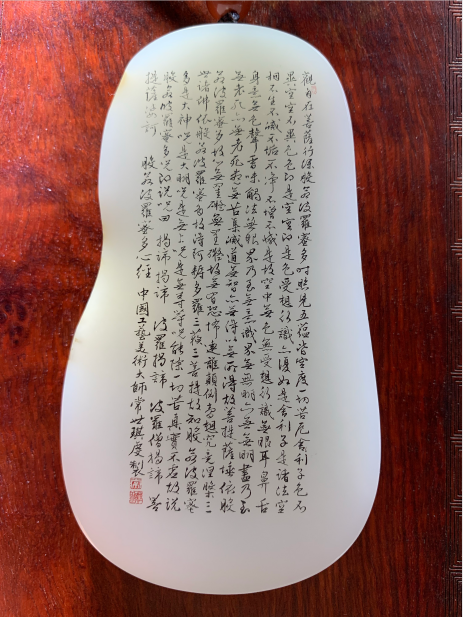 觀自在菩薩行深般若波羅蜜多時照見五蘊皆空度一切苦厄舍利子色不
異空空不異色色即是空空即是色受想行識亦復如是舍利子是諸法空
相不生不滅不垢不淨不增不減是故空中無色無受想行識無眼耳鼻舌
身意無色聲香味觸法無眼界乃至無意識界無無明亦無無明盡乃至
無老死亦無老死盡無苦集滅道無智亦無得以無所得故菩提薩埵依般
若波羅蜜多故心無罣礙無罣礙故無有恐怖遠離顛倒夢想究竟涅槃三
世諸佛依般若波羅蜜多故得阿耨多羅三藐三菩提故知般若波羅蜜
多是大神咒是大明咒是無上咒是無等等咒能除一切苦真實不虛故說
般若波羅蜜多咒即說咒曰 揭諦揭諦 波羅揭諦 波羅僧揭諦 菩
提薩婆訶 般若波羅蜜多心經 中國工藝美術大師常世琪虔製